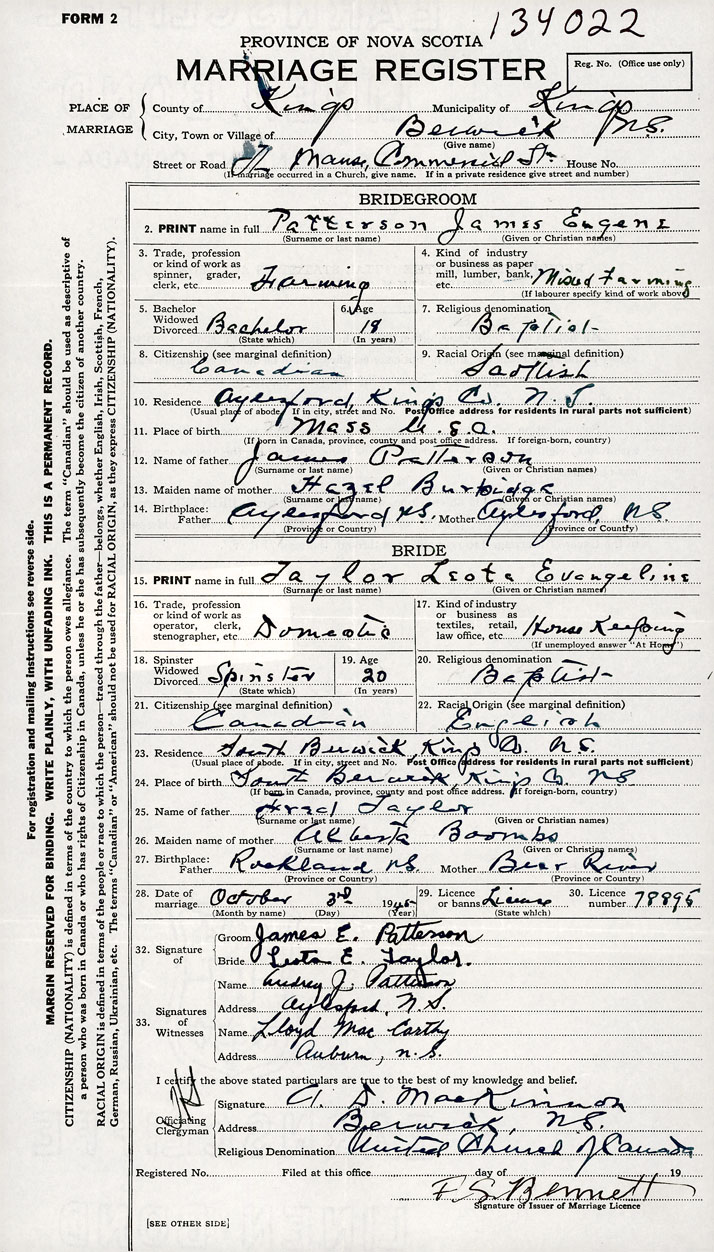 FORM 2
134022
PROVINCE OF NOVA SCOTIA
MARRIAGE REGISTER
Reg. No. (Office use only)
PLACE OF MARRIAGE
County of Kings Municipality of Kings
City, Town or Village of Berwick N.S.
(Give name)
Street or Road Manse, Commercial St. House No.
(If marriage occurred in a Church, give name. If in a private residence give street and number)
BRIDEGROOM
2. PRINT name in full Patterson James Eugene
(Surname or last name) (Given or Christian names)
3. Trade, profession or kind of work as spinner, grader, clerk, etc. Farming
4. Kind of industry or business as paper mill, lumber, bank, etc. Mixed Farming
(If labourer specify kind of work above)
5. Bachelor Widowed Divorced Bachelor
(State which)
6. Age 18
(In years)
7. Religious denomination Baptist
8. Citizenship (see marginal definition) Canadian
9. Racial Origin (see marginal definition) Scottish
10. Residence Aylesford, Kings Co. N.S.
(Usual place of abode. If in city, street and No. Post Office address for residents in rural parts not sufficient)
11. Place of birth Mass U.S.A.
(If born in Canada, province, county and post office address. If foreign-born, country)
12. Name of father James Patterson
(Surname or last name) (Given or Christian names)
13. Maiden name of mother Hazel Burbidge
(Surname or last name) (Given or Christian names)
14. Birthplace: Father Aylesford N.S. Mother Aylesford, N.S.
(Province or Country) (Province or Country)
BRIDE
15. PRINT name in full Taylor Leota Evangeline
(Surname or last name) (Given or Christian names)
16. Trade, profession or kind of work as operator, clerk, stenographer, etc. Domestic
17. Kind of industry or business as textiles, retail, law office, etc. House Keeping
(If unemployed answer "At Home")
18. Spinster Widowed Divorced Spinster
(State which)
19. Age 20
(In years)
20. Religious denomination Baptist
21. Citizenship (see marginal definition) Canadian
22. Racial Origin (see marginal definition) English
23. Residence South Berwick, Kings Co. N.S.
(Usual place of abode. If in city, street and No. Post Office address for residents in rural parts not sufficient)
24. Place of birth South Berwick, Kings Co. NS
(If born in Canada, province, county and post office address. If foreign-born, country)
25. Name of father Taylor
(Surname or last name) (Given or Christian names)
26. Maiden name of mother Alberta
(Surname or last name) (Given or Christian names)
27. Birthplace: Father Rockland N.S. Mother Bear River
(Province or Country) (Province or Country)
28. Date of marriage October 3rd 1945
(Month by name) (Day) (Year)
29. Licence or banns License
(State which)
30. Licence number 78895
32. Signature of
Groom James E. Patterson
Bride Leota E. Taylor.
33. Signatures of Witnesses
Name Audrey J. Patterson
Address Aylesford, N.S.
Name Lloyd MacCarthy
Address Auburn, N.S.
I certify the above stated particulars are true to the best of my knowledge and belief.
Officiating Clergyman
Signature MacKinnon
Address Berwick, N.S.
Religious Denomination United Church of Canada
Registered No. Filed at this office day of 19
F.S. Bennett
Signature of Issuer of Marriage Licence
[SEE OTHER SIDE]
For registration and mailing instructions see reverse side.
MARGIN RESERVED FOR BINDING. WRITE PLAINLY, WITH UNFADING INK. THIS IS A PERMANENT RECORD.
CITIZENSHIP (NATIONALITY) is defined in terms of the country to which the person owes allegiance. The term "Canadian" should be used as descriptive of
a person who was born in Canada or who has rights of Citizenship in Canada, unless he or she has subsequently become the citizen of another country.
RACIAL ORIGIN is defined in terms of the people or race to which the person—traced through the father—belongs, whether English, Irish, Scottish, French,
German, Russian, Ukrainian, etc. The terms "Canadian" or "American" should not be used for RACIAL ORIGIN, as they express CITIZENSHIP (NATIONALITY).